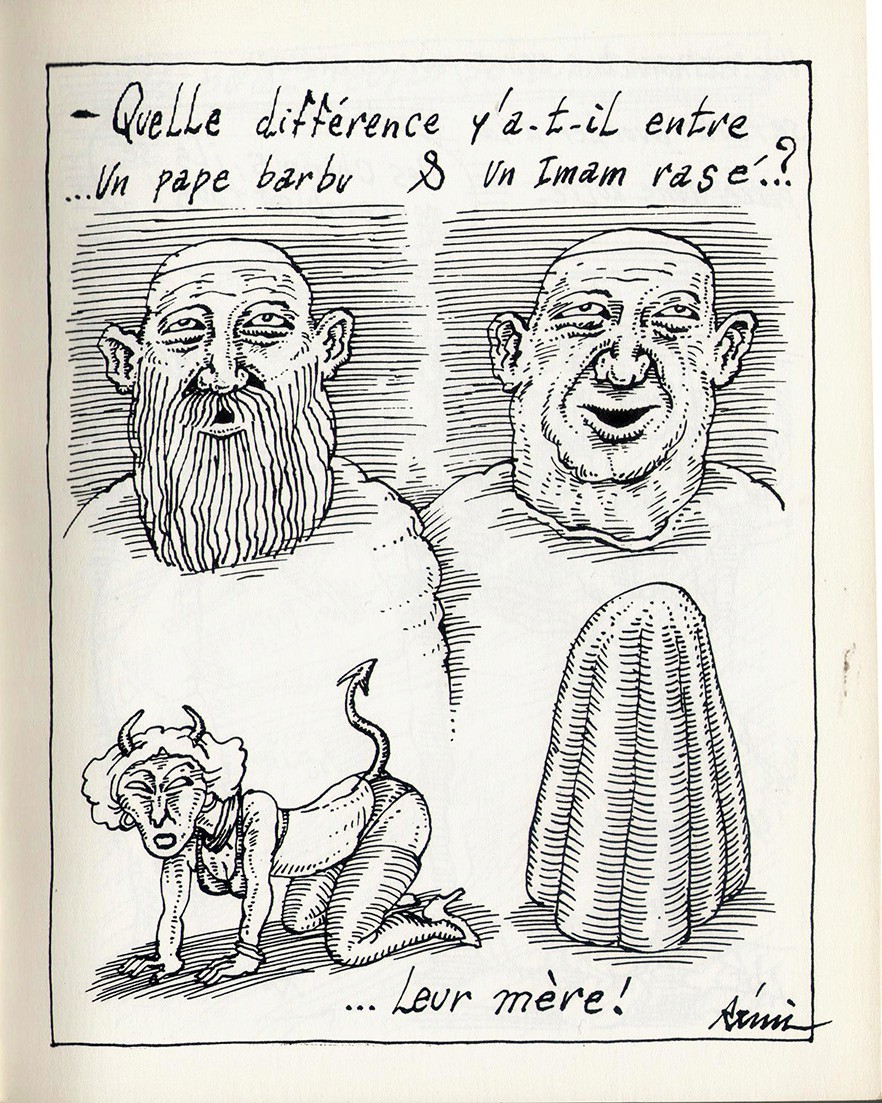 - Quelle différence y'a-t-il entre
...Un pape barbu & Un Imam rasé..?
... Leur mère!